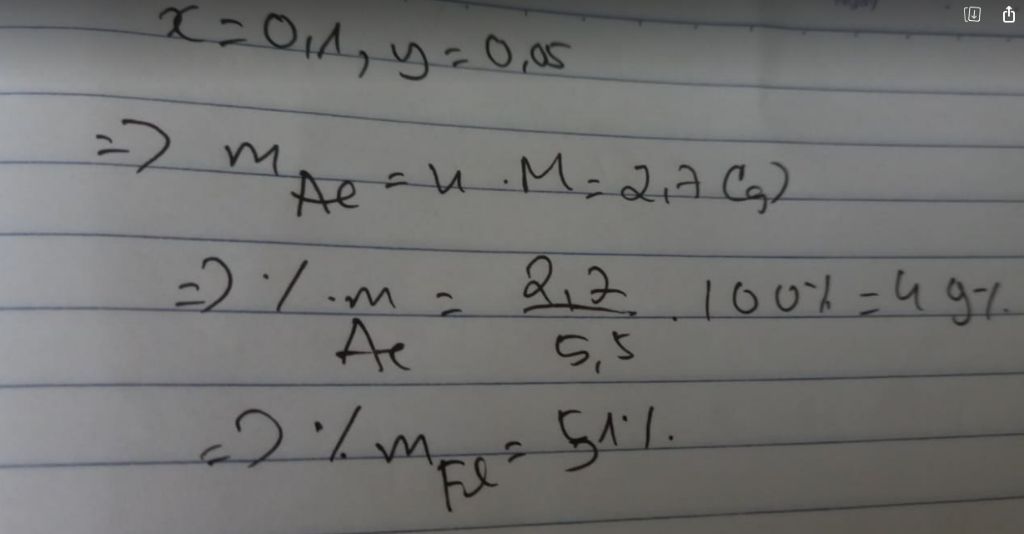 x = 0,1, y = 0,05
=> m Al = n . M = 2,7 (g)
=> % m Al = 2,7 / 5,5 . 100% = 49%.
=> % m Fe = 51%.